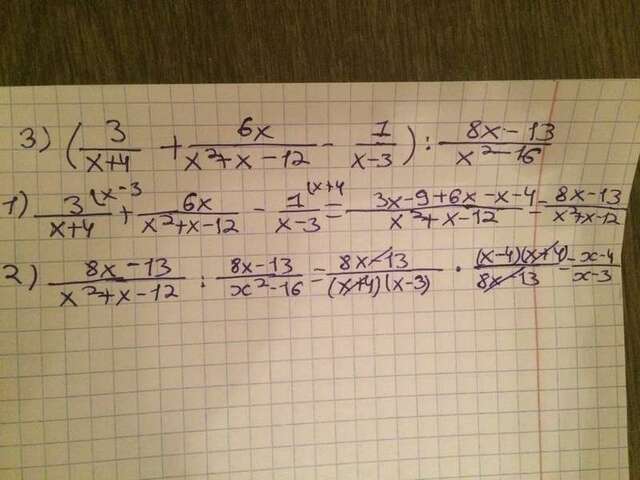 3) (3/(x+4) + 6x/(x²+x-12) - 1/(x-3)) : (8x-13)/(x²-16)
1) 3/(x+4) \x-3 + 6x/(x²+x-12) - 1/(x-3) \x+4 = (3x-9+6x-x-4)/(x²+x-12) = (8x-13)/(x²+x-12)
2) (8x-13)/(x²+x-12) : (8x-13)/(x²-16) = (8x-13)/((x+4)(x-3)) · (x-4)(x+4)/(8x-13) = (x-4)/(x-3)